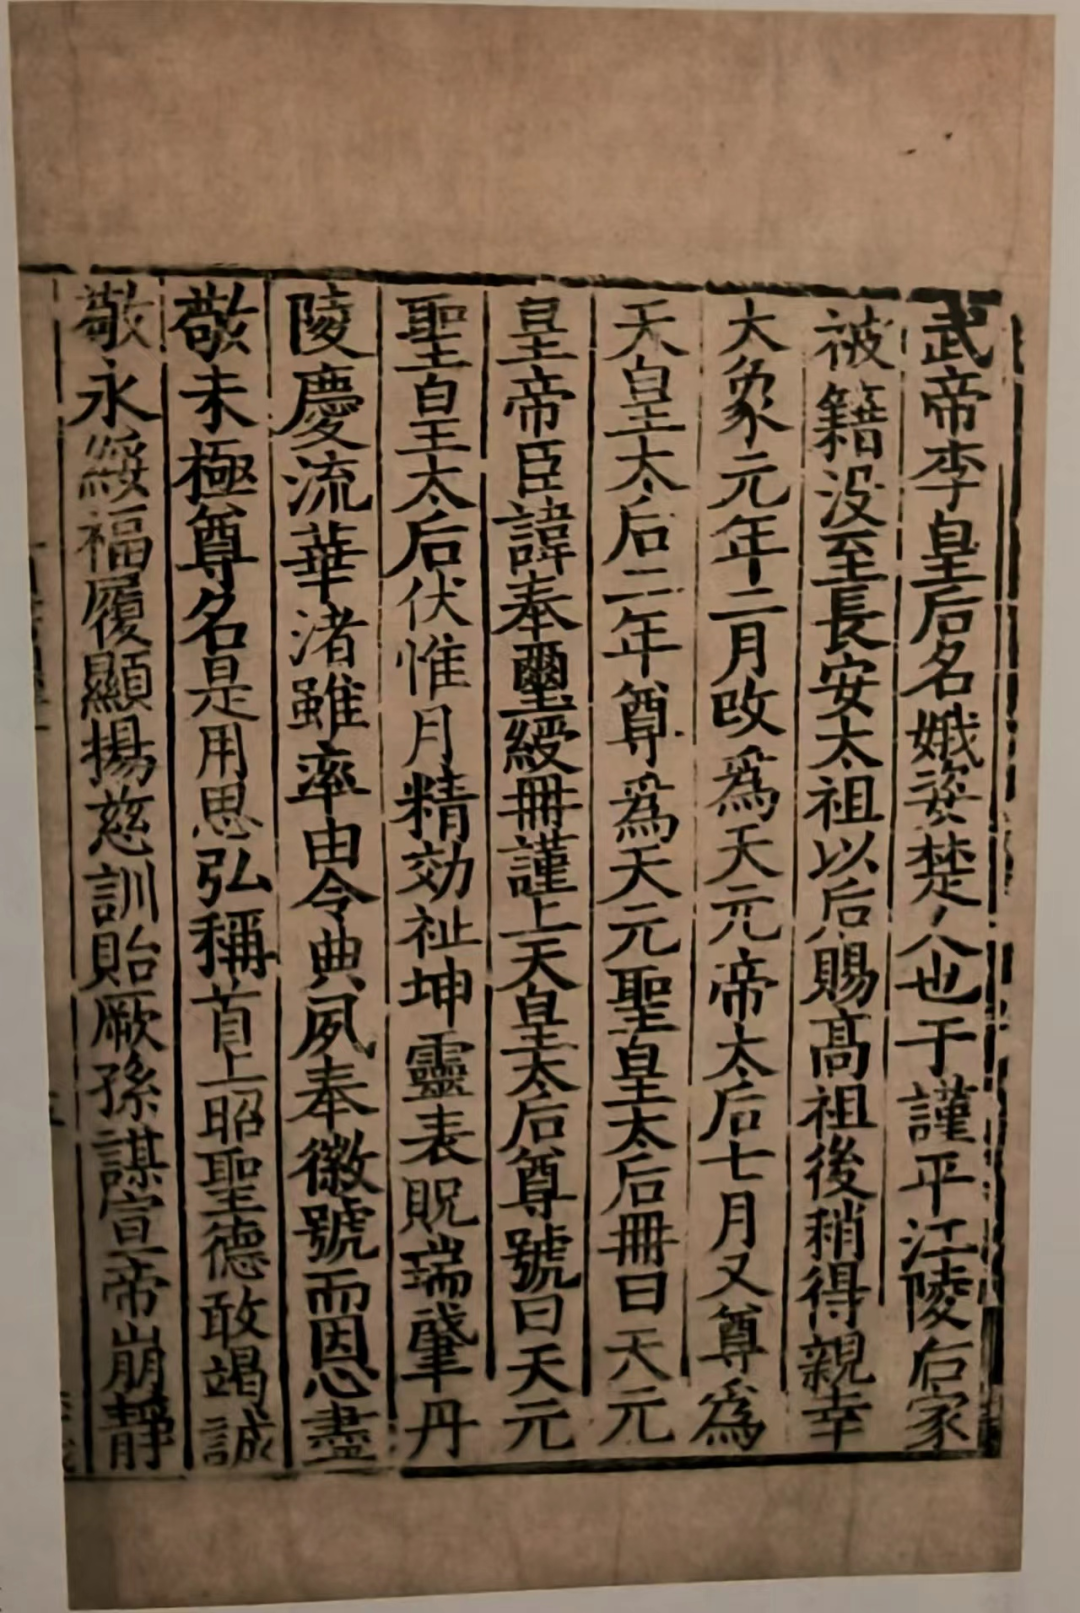 武帝李皇后名娥姿楚人也于謹平江陵后家
被籍没至長安太祖以后賜髙祖後稍得親幸
大象元年二月改爲天元帝太后七月又尊爲
天皇太后二年尊爲天元聖皇太后冊曰天元
皇帝臣諱奉璽綬冊謹上天皇太后尊號曰天元
聖皇太后伏惟月精効祉坤靈表貺瑞肇丹
陵慶流華渚雖率由令典夙奉徽號而因心盡
敬未極尊名是用思弘稱首上昭聖德敢竭誠
敬永綏福履顯揚慈訓貽厥孫謀宣帝崩靜